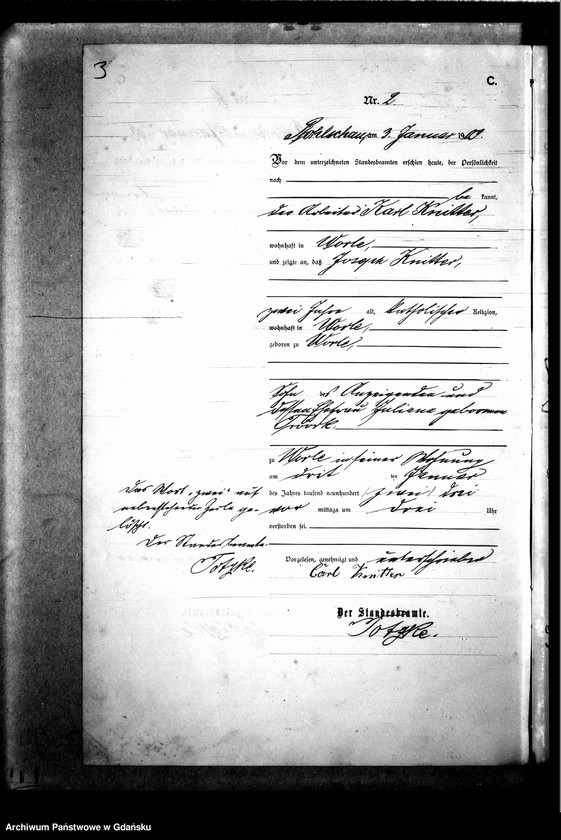 3
C.
Nr. 2.
am 3. Januar 1903.
Vor dem unterzeichneten Standesbeamten erschien heute, der Persönlichkeit
nach
be kannt,
der Arbeiter Karl Knitter,
wohnhaft in Worle,
und zeigte an, daß Joseph Knitter,
zwei Jahre alt, katholischer Religion,
wohnhaft in Worle,
geboren zu Worle,
Sohn des Anzeigenden und
dessen Ehefrau Juliana geborenen
zu Worle in seiner Wohnung
am dritten Januar
des Jahres tausend neunhundert (zwei) drei
vor mittags um drei Uhr
verstorben sei.
Das Wort "zwei" auf
nebenstehender Zeile ge-
löscht.
Der Standesbeamte.
Totzke.
Vorgelesen, genehmigt und unterschrieben
Carl Knitter
Der Standesbeamte.
Totzke.
Archiwum Państwowe w Gdańsku